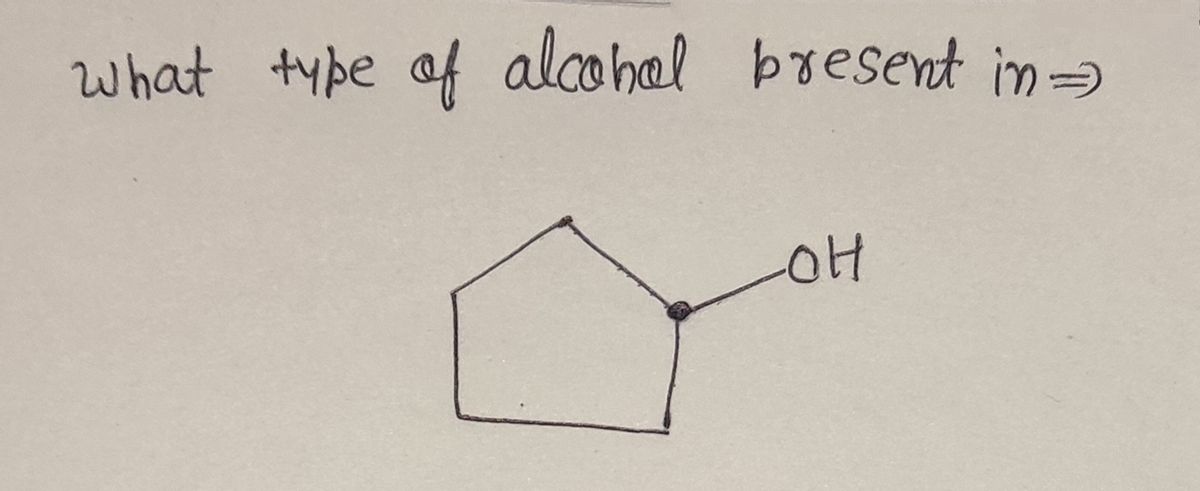 what type of alcohol present in ⇒
OH